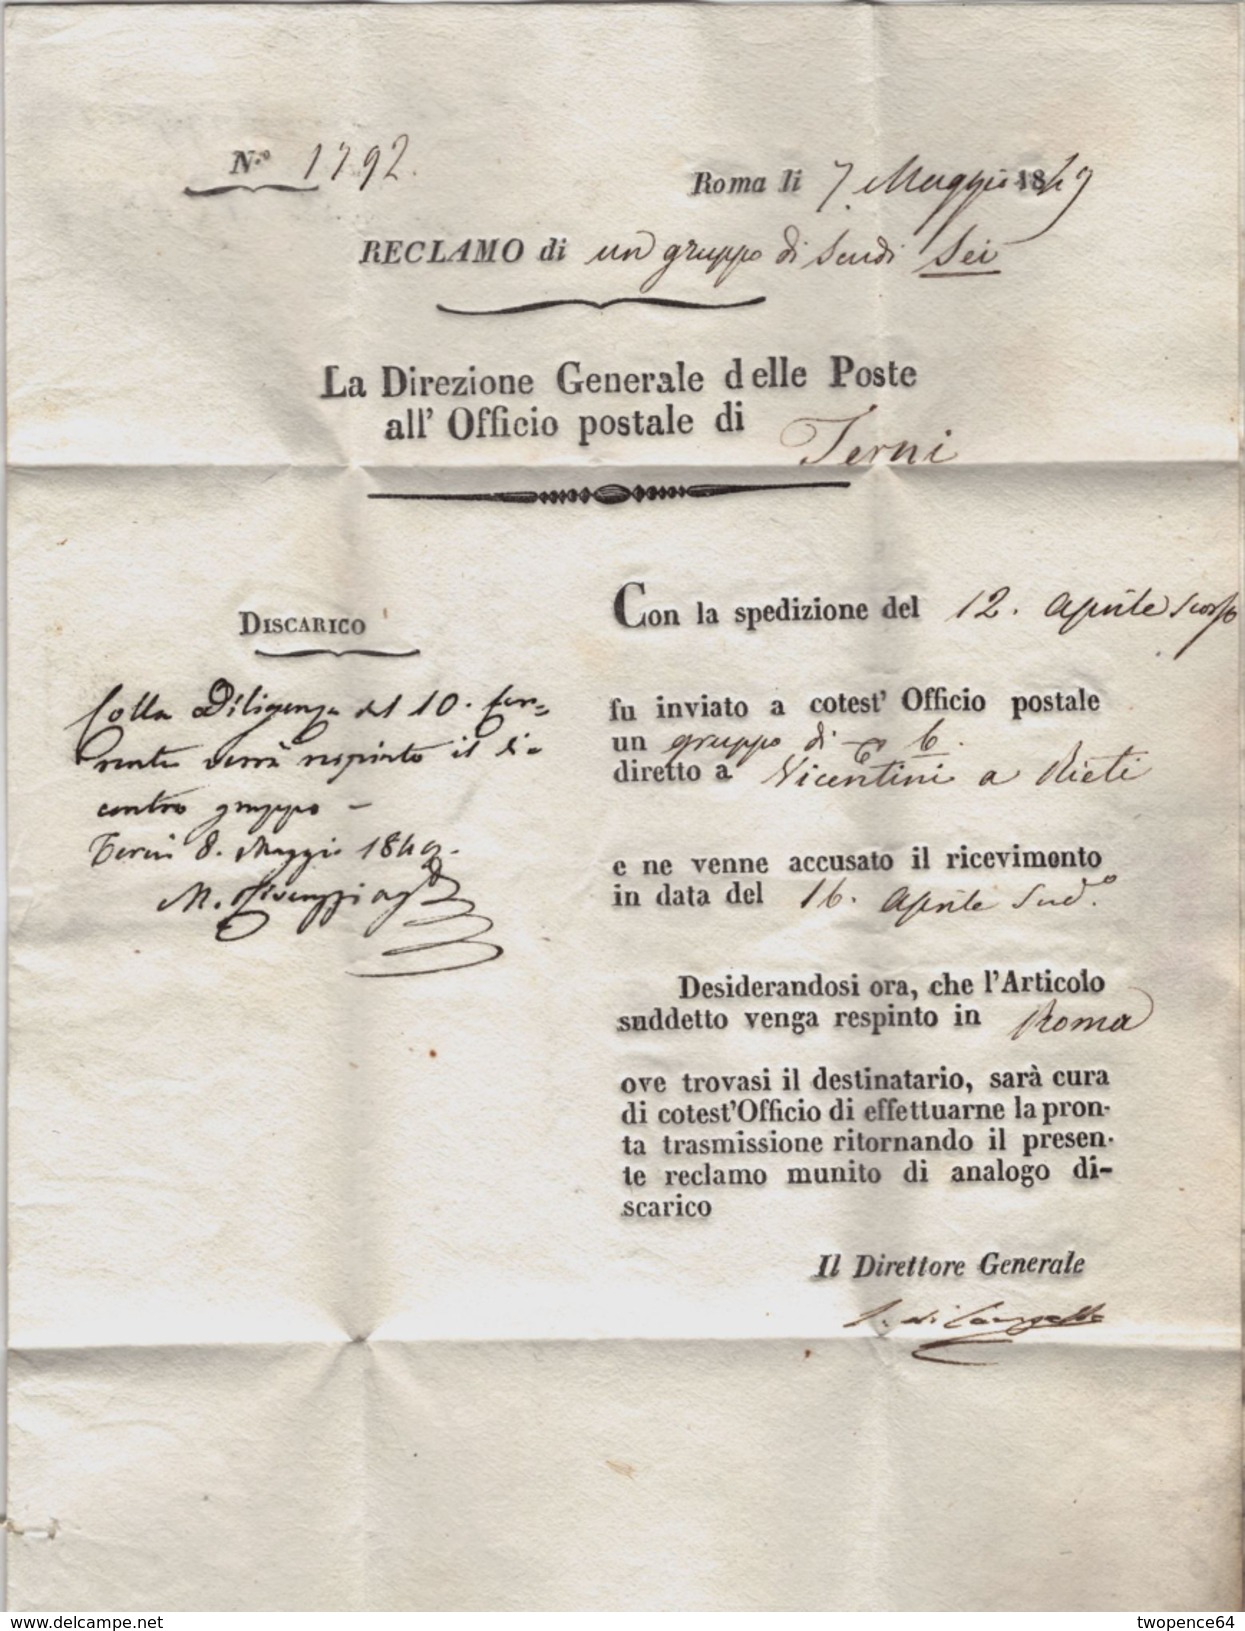 N.º 1792.
Roma li 7. Maggio 1849
RECLAMO di un gruppo di Scudi Sei
La Direzione Generale delle Poste
all' Officio postale di Terni
DISCARICO
Colla Diligenza del 10. cor=
rente verrà respinto il di
contro gruppo –
Terni 8. Maggio 1849.
M.
Con la spedizione del 12. Aprile scorso
fu inviato a cotest' Officio postale
un gruppo di 6.
diretto a Vicentini a Rieti
e ne venne accusato il ricevimento
in data del 16. Aprile Sud.º
Desiderandosi ora, che l'Articolo
suddetto venga respinto in Roma
ove trovasi il destinatario, sarà cura
di cotest'Officio di effettuarne la pron-
ta trasmissione ritornando il presen-
te reclamo munito di analogo di-
scarico
Il Direttore Generale
delcampe.net
twopence64